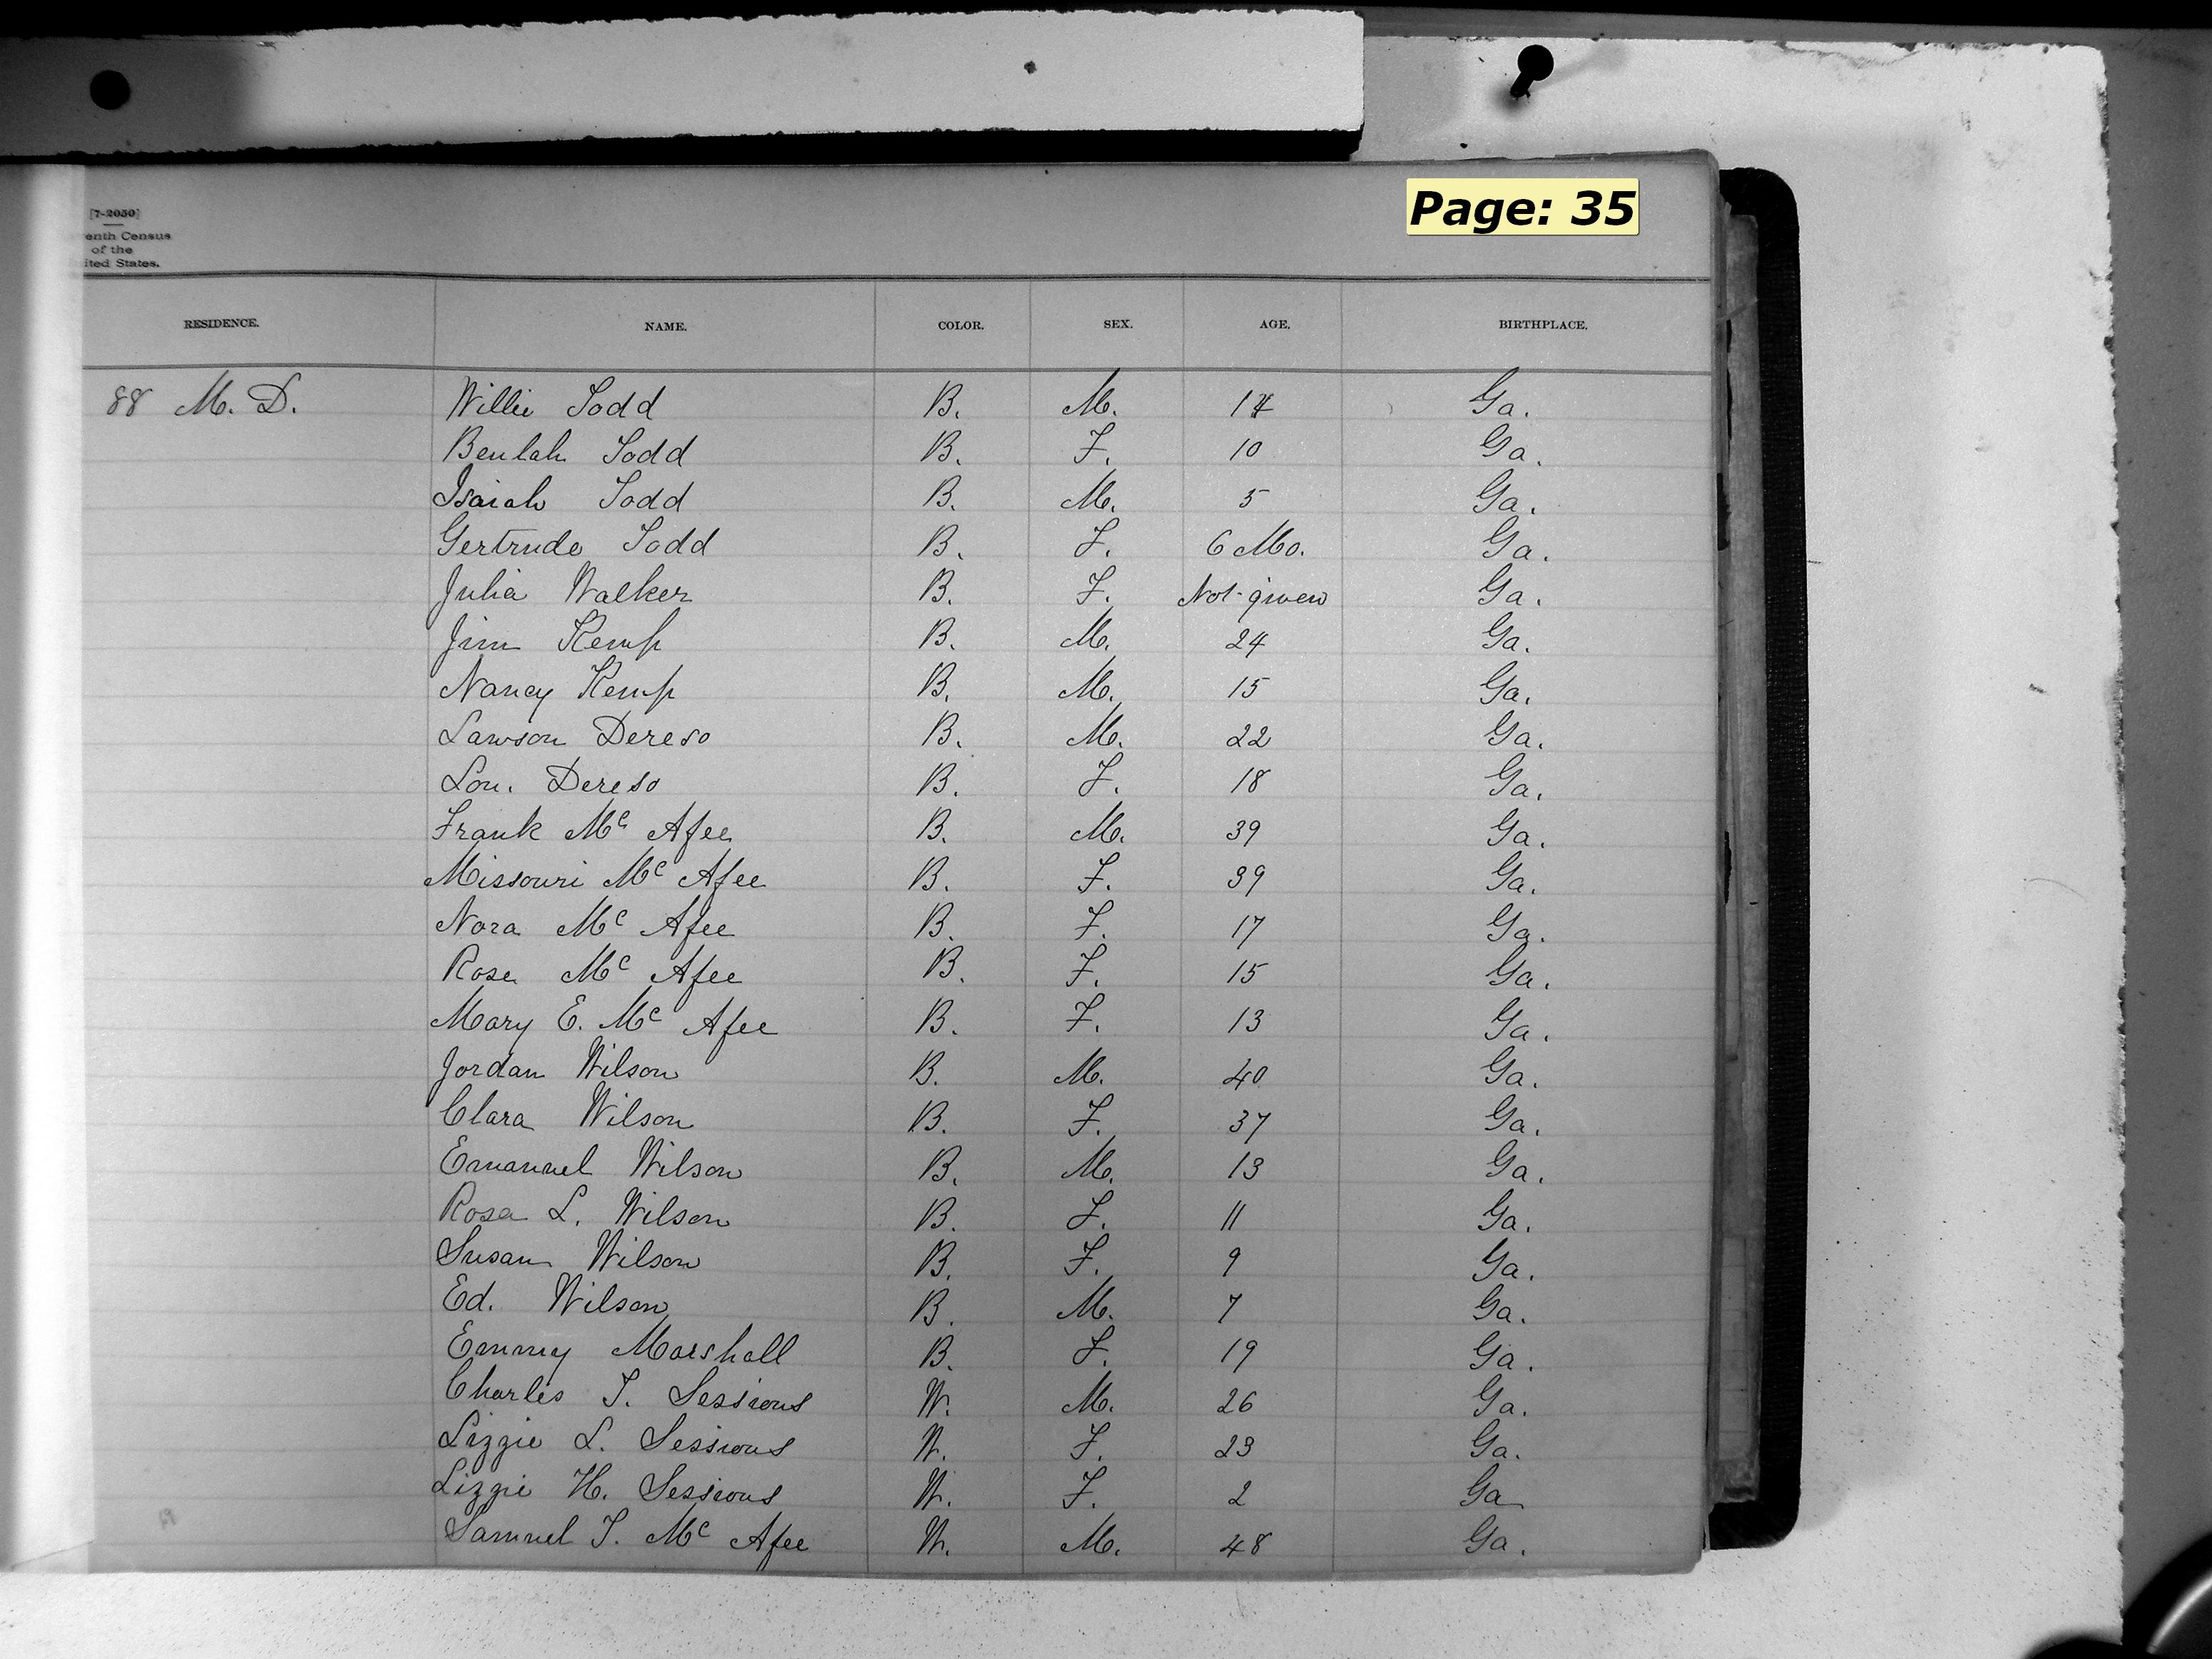 Page: 35
[7-2050]
enth Census
of the
ited States.
RESIDENCE. NAME. COLOR. SEX. AGE. BIRTHPLACE.
88 M. D. Willie Todd B. M. Ga.
Beulah Todd B. F. 10 Ga.
Isaiah Todd B. M. 5 Ga.
Gertrude Todd B. F. 6 Mo. Ga.
Julia Walker B. F. Not given Ga.
Jim Kemp B. M. 24 Ga.
Nancy Kemp B. M. 15 Ga.
Lawson Dereso B. M. 22 Ga.
Lou. Dereso B. F. 18 Ga.
Frank Mc Afee B. M. 39 Ga.
Missouri Mc Afee B. F. 39 Ga.
Nora Mc Afee B. F. 17 Ga.
Rose Mc Afee B. F. 15 Ga.
Mary E. Mc Afee B. F. 13 Ga.
Jordan Wilson B. M. 40 Ga.
Clara Wilson B. F. 37 Ga.
Emanuel Wilson B. M. 13 Ga.
Rosa L. Wilson B. F. 11 Ga.
Susan Wilson B. F. 9 Ga.
Ed. Wilson B. M. 7 Ga.
Emmy Marshall B. F. 19 Ga.
Charles T. Sessions W. M. 26 Ga.
Lizzie L. Sessions W. F. 23 Ga.
Lizzie H. Sessions W. F. 2 Ga
Samuel T. Mc Afee W. M. 48 Ga.